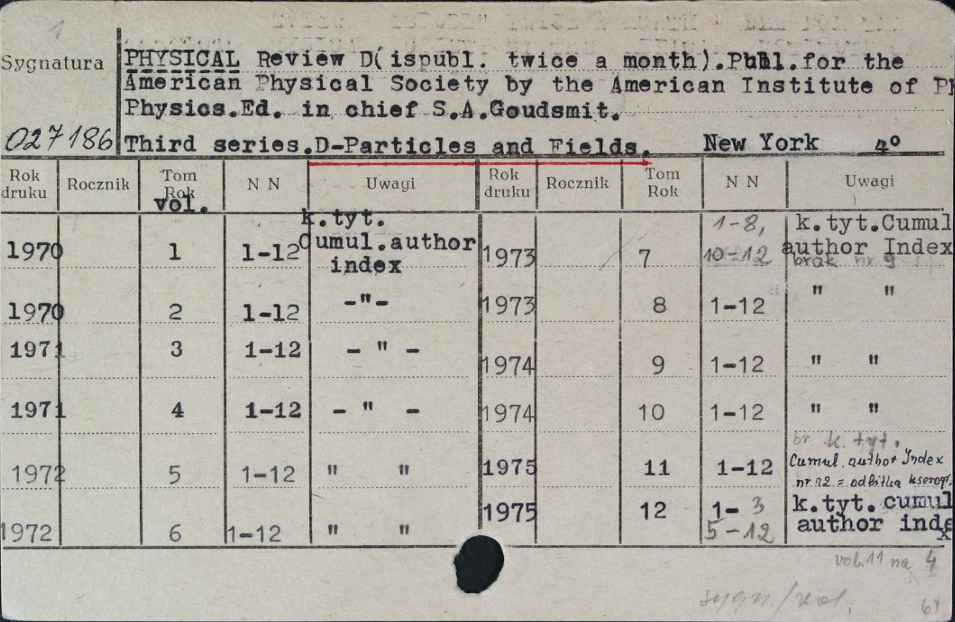 Sygnatura
027186
PHYSICAL Review D(ispubl. twice a month).Publ.for the
American Physical Society by the American Institute of Ph
Physics.Ed. in chief S.A.Goudsmit.
Third series.D-Particles and Fields. New York 4º
Rok druku Rocznik Tom Rok vol. N N Uwagi Rok druku Rocznik Tom Rok N N Uwagi
1970 1 1-12 k.tyt. Cumul.author index
1970 2 1-12 -"-
1971 3 1-12 - " -
1971 4 1-12 - " -
1972 5 1-12 " "
1972 6 1-12 " "
1973 7 1-8, 10-12 k.tyt.Cumul author Index brak nr 9
1973 8 1-12 " "
1974 9 1-12 " "
1974 10 1-12 " "
1975 11 1-12 br k. tyt. Cumul. author Index nr 12 = odbitka kserogr.
1975 12 1-3 5-12 k.tyt.cumul author index
vol.11 na 4
sygn./vol.